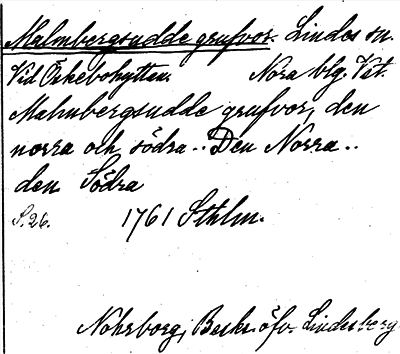 Malmbergsudde grufvor. Lindes sn.
Vid Önkebohyttan. Nora blg. Vst.
Malmbergsudde grufvor, den
norra och södra.. Den Norra..
den Södra
S. 26. 1761 Sthlm.
Nohrborg, Beskr. öfv. Lindesberg